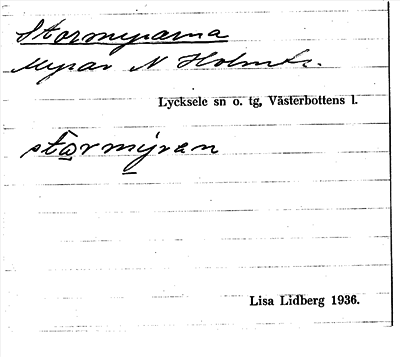 Stormyrarna
Myrar N Holmtr.
Lycksele sn o. tg, Västerbottens l.
stormýran
Lisa Lidberg 1936.